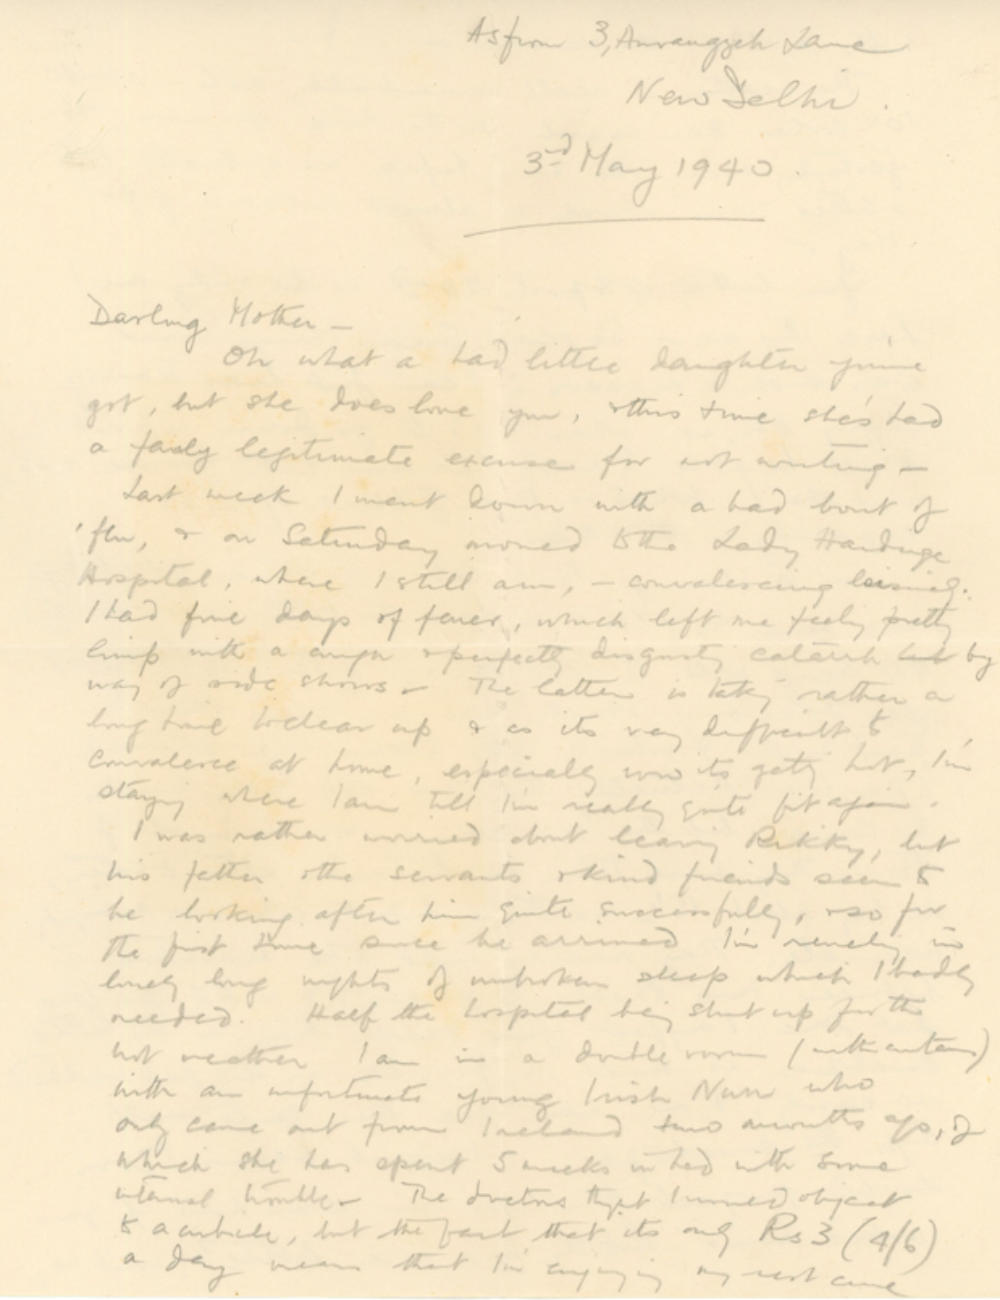 As from 3, Aurangzeb Lane
New Delhi.
3rd May 1940.
Darling Mother –
Oh what a bad little daughter you've
got, but she does love you, & this time she's had
a fairly legitimate excuse for not writing –
Last week I went down with a bad bout of
'flu, & on Saturday moved to the Lady Hardinge
Hospital, where I still am, – convalescing
I had five days of fever, which left me feeling pretty
limp with a cough & perfectly disgusting catarrh by
way of side shows – The latter is taking rather a
long time to clear up & as its very difficult to
convalesce at home, especially now its getting hot, I'm
staying where I am till I'm really quite fit again.
I was rather worried about leaving Rikky, but
his father & the servants & kind friends seem to
be looking after him quite successfully, & so for
the first time since he arrived I'm revelling in
lovely long nights of unbroken sleep which I badly
needed. Half the hospital being shut up for the
hot weather I am in a double room (with curtains)
with an unfortunate young Irish Nun who
only came out from Ireland two months ago, of
which she has spent 5 weeks in bed with some
internal trouble – The doctors thought I would object
to a cubicle, but the fact that its only Rs 3 (4/6)
a day means that I'm enjoying my rest cure